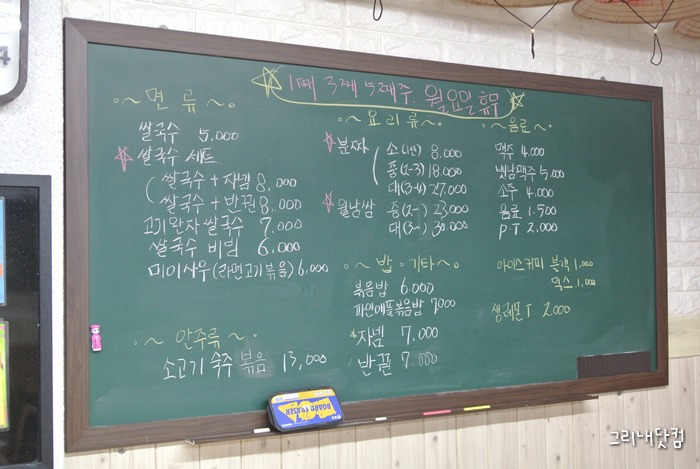 1째 3째 5째주. 월요일 휴무
~ 면 류 ~
쌀국수 5.000
쌀국수 세트
쌀국수 + 자넴 8,000
쌀국수 + 반꾼 8,000
고기완자쌀국수 7.000
쌀국수 비빔 6.000
미이사우 (라면고기볶음) 6,000
~ 안주류 ~
소고기 숙주 볶음 13,000
~ 요리류 ~
분짜 소(1인) 8.000
중(2-3) 18.000
대(3-4) 27.000
월남쌈 중(2-) 23000
대(3-) 30.000
~ 밥 · 기타 ~
볶음밥 6.000
파인애플볶음밥 7000
자넴 7.000
반꾼 7.000
~ 음료 ~
맥주 4.000
벳남맥주 5.000
소주 4.000
음료 1.500
P.T 2.000
아이스커피 블랙 1.000
믹스 1.000
생레몬T 2.000
BOARD ERASER
그리내닷컴
4